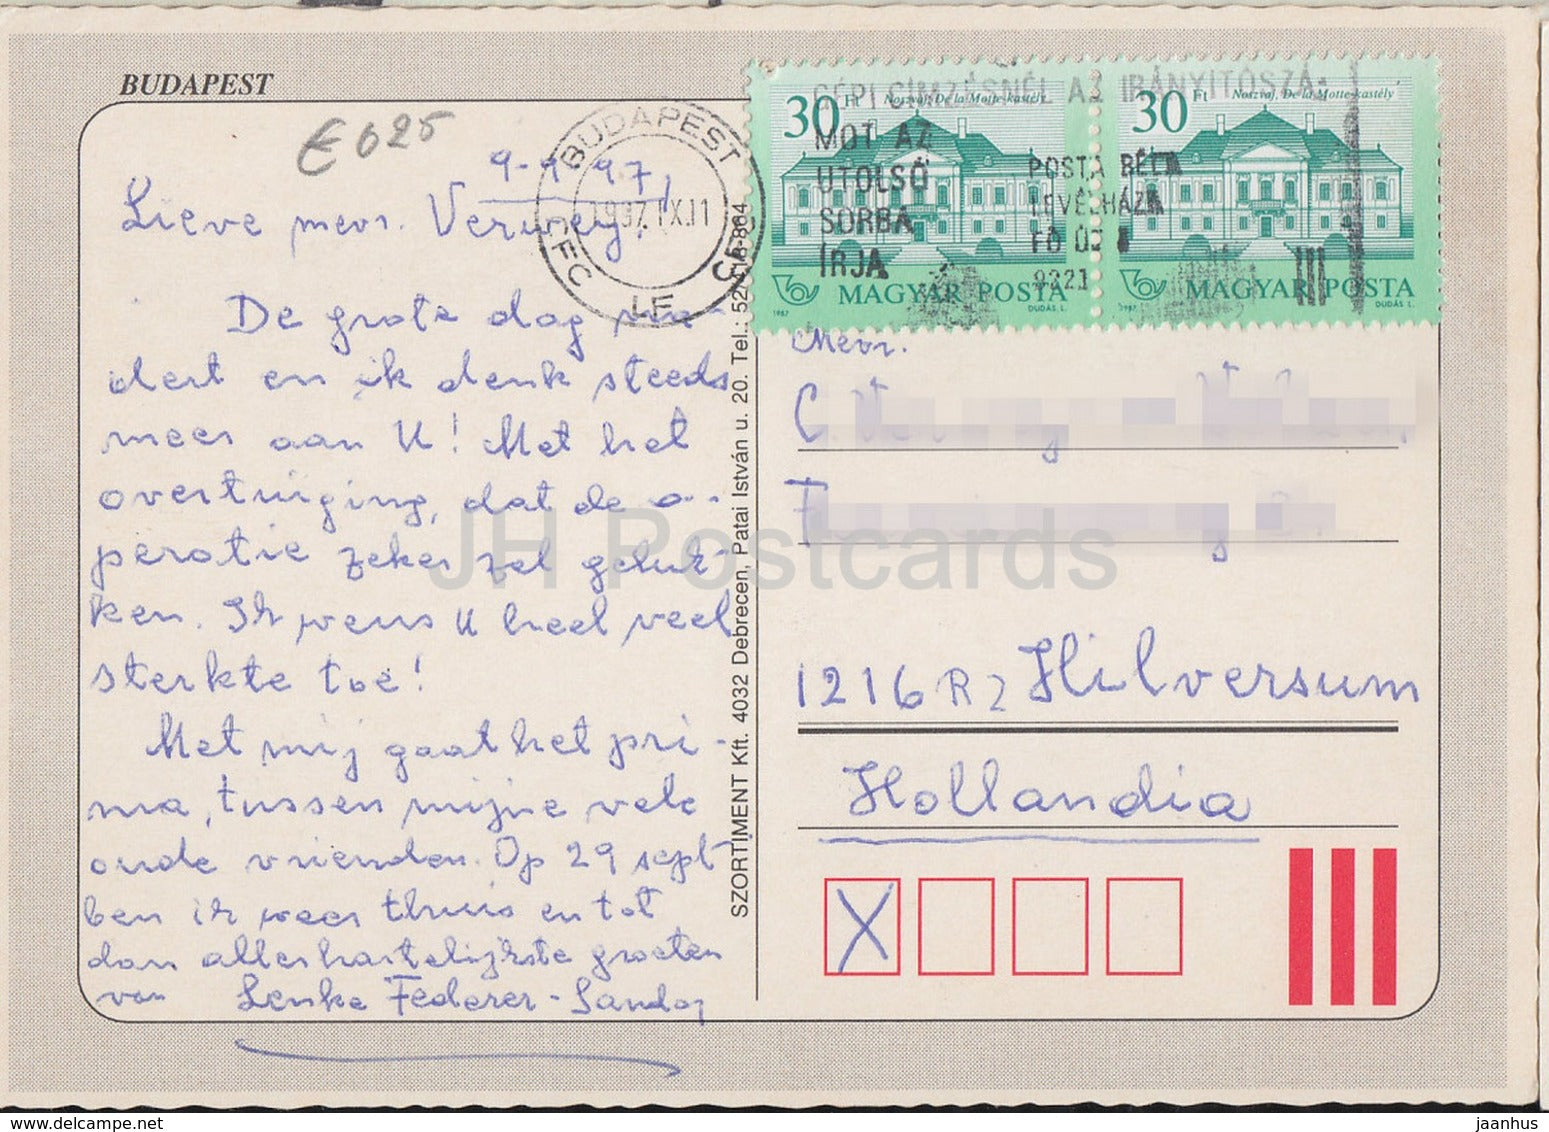 BUDAPEST
€ 025
9-9-97
Lieve mevr. Verweij,
De grote dag na-
dert en ik denk steeds
meer aan U! Met het
overtuiging, dat de o-
peratie zeker zal geluk-
ken. Ik wens U heel veel
sterkte toe!
Met mij gaat het pri-
ma, tussen mijne vele
oude vrienden. Op 29 sept
ben ik weer thuis en tot
dan allerhartelijkste groeten
van Lenke Federer-Sandor
SZORTIMENT Kft. 4032 Debrecen, Patai István u. 20. Tel.: 52/418-864
BUDAPEST
1997.IX.11
CFC
LE
CFC
30 Ft Noszvaj, De la Motte-kastély
MAGYAR POSTA
1987 DUDÁS L.
30 Ft Noszvaj, De la Motte-kastély
MAGYAR POSTA
1987 DUDÁS L.
GÉPI CÍMZÉSNÉL AZ IRÁNYÍTÓSZÁ-
MOT AZ
UTOLSÓ
SORBA
ÍRJA
POSTA BÉLA
LEVÉLHÁZA
FŐ ÚT
9321
Mevr.
C.
1216 RZ Hilversum
Hollandia
X
JH Postcards
www.delcampe.net
jaanhus